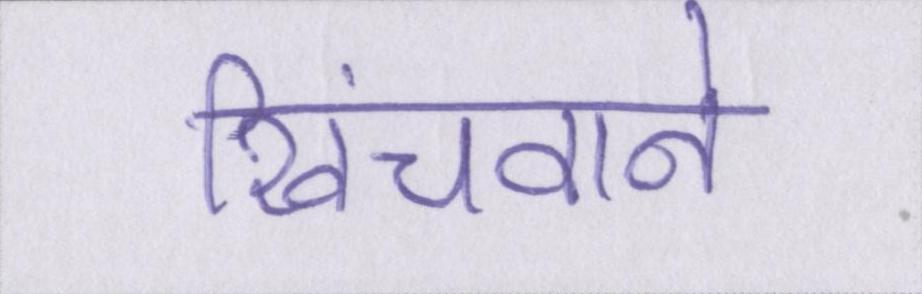 खिंचवाने